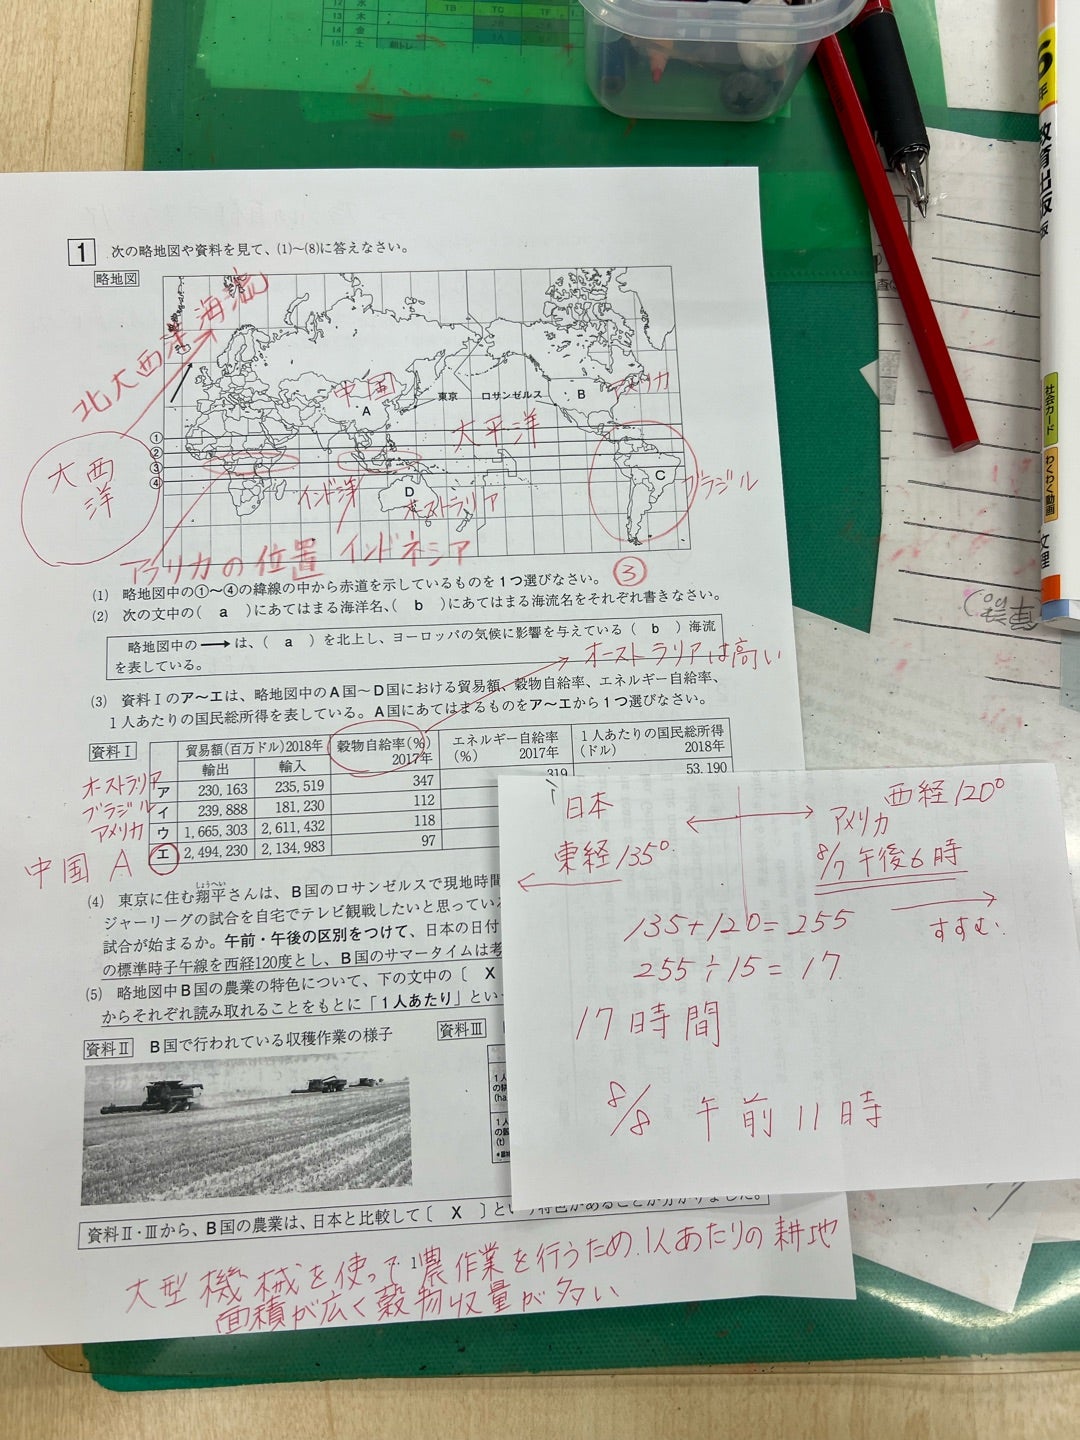 12 水
13 木
14 金
15 土
TB TC TF
朝トレ
1 次の略地図や資料を見て、(1)~(8)に答えなさい。
略地図
北大西洋海流
大西洋
中国
A
東京
ロサンゼルス
B
アメリカ
太平洋
①
②
③
④
インド洋
D
オーストラリア
C
ブラジル
アフリカの位置
インドネシア
(1) 略地図中の①~④の緯線の中から赤道を示しているものを1つ選びなさい。 ③
(2) 次の文中の( a )にあてはまる海洋名、( b )にあてはまる海流名をそれぞれ書きなさい。
略地図中の→は、( a )を北上し、ヨーロッパの気候に影響を与えている( b )海流
を表している。
オーストラリアは高い
(3) 資料Ⅰのア~エは、略地図中のA国~D国における貿易額、穀物自給率、エネルギー自給率、
1人あたりの国民総所得を表している。A国にあてはまるものをア~エから1つ選びなさい。
資料Ⅰ
貿易額(百万ドル)2018年 穀物自給率(%) 2017年 エネルギー自給率(%) 2017年 1人あたりの国民総所得(ドル) 2018年
輸出 輸入
オーストラリア ア 230,163 235,519 347 319 53,190
ブラジル イ 239,888 181,230 112
アメリカ ウ 1,665,303 2,611,432 118
中国 A エ 2,494,230 2,134,983 97
(4) 東京に住む翔平さんは、B国のロサンゼルスで現地時間
しょうへい
ジャーリーグの試合を自宅でテレビ観戦したいと思っている
試合が始まるか。午前・午後の区別をつけて、日本の日付
の標準時子午線を西経120度とし、B国のサマータイムは考
(5) 略地図中B国の農業の特色について、下の文中の〔 X
からそれぞれ読み取れることをもとに「1人あたり」とい
資料Ⅱ B国で行われている収穫作業の様子
資料Ⅲ
1人
(ha
1人
(t)
資料Ⅱ・Ⅲから、B国の農業は、日本と比較して〔 X 〕という特色があることが分かりました。
1
大型機械を使って農作業を行うため、1人あたりの耕地
面積が広く穀物収量が多い
日本
東経135°
西経120°
アメリカ
8/7 午後6時
すすむ
135+120=255
255÷15=17
17時間
8/8 午前11時
6年
教育出版版
社会カード
わくわく動画
文理